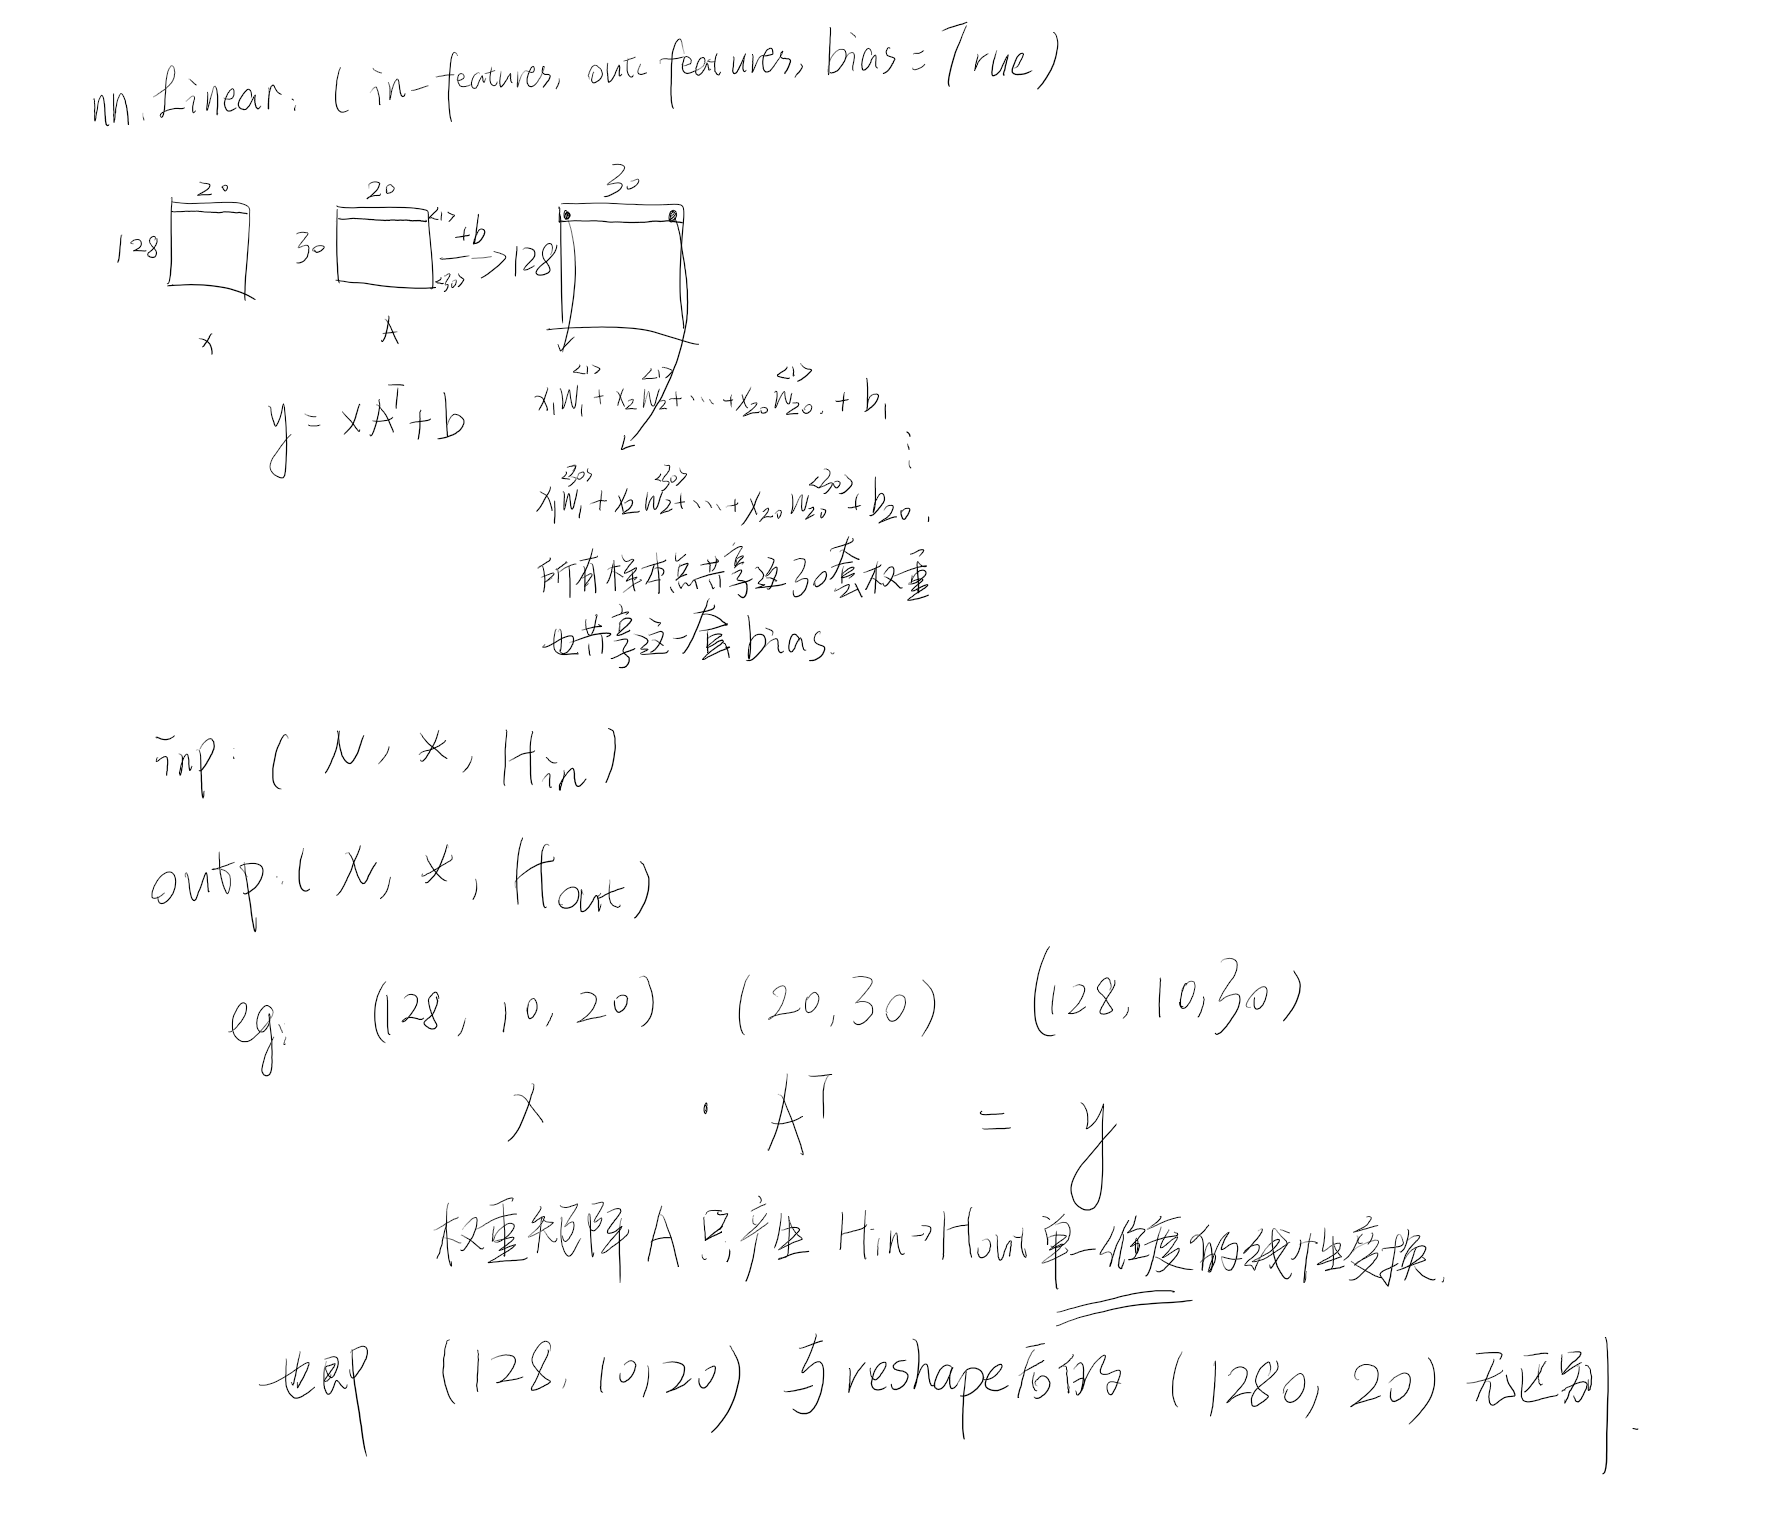 nn.Linear: (in-features, out-features, bias=True)
20 20 30
128 30 <1> +b 128
<30>
x A
y = xAᵀ+b
x₁w₁<1> + x₂w₂<1> + ... + x₂₀w₂₀<1> + b₁
⋮
x₁w₁<30> + x₂w₂<30> + ... + x₂₀w₂₀<30> + b₂₀.
所有样本点共享这30套权重
也共享这一套bias.
inp: (N, *, Hin)
outp: (N, *, Hout)
eg: (128, 10, 20) (20, 30) (128, 10, 30)
x · Aᵀ = y
权重矩阵A只产生Hin→Hout单一维度的线性变换.
也即 (128, 10, 20) 与reshape后的 (1280, 20) 无区别.